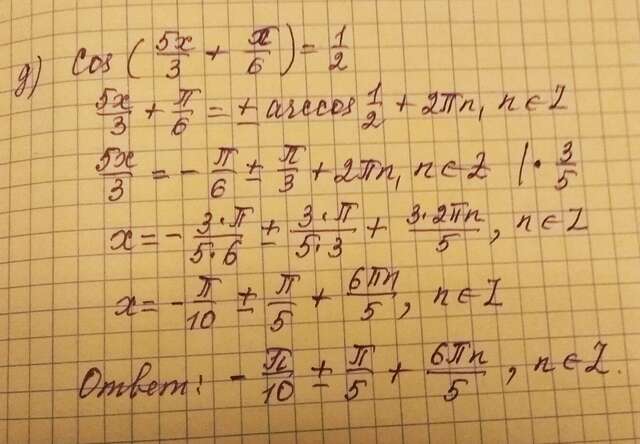 д) cos(5x/3 + π/6) = 1/2
5x/3 + π/6 = ± arccos 1/2 + 2πn, n ∈ Z
5x/3 = - π/6 ± π/3 + 2πn, n ∈ Z | · 3/5
x = - 3·π/5·6 ± 3·π/5·3 + 3·2πn/5, n ∈ Z
x = - π/10 ± π/5 + 6πn/5, n ∈ Z
Ответ: - π/10 ± π/5 + 6πn/5, n ∈ Z.